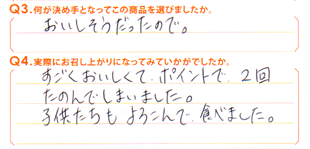 Q3.何が決め手となってこの商品を選びましたか。
おいしそうだったので。
Q4.実際にお召し上がりになってみていかがでしたか。
すごくおいしくて、ポイントで、2回
たのんでしまいました。
子供たちも よろこんで、食べました。